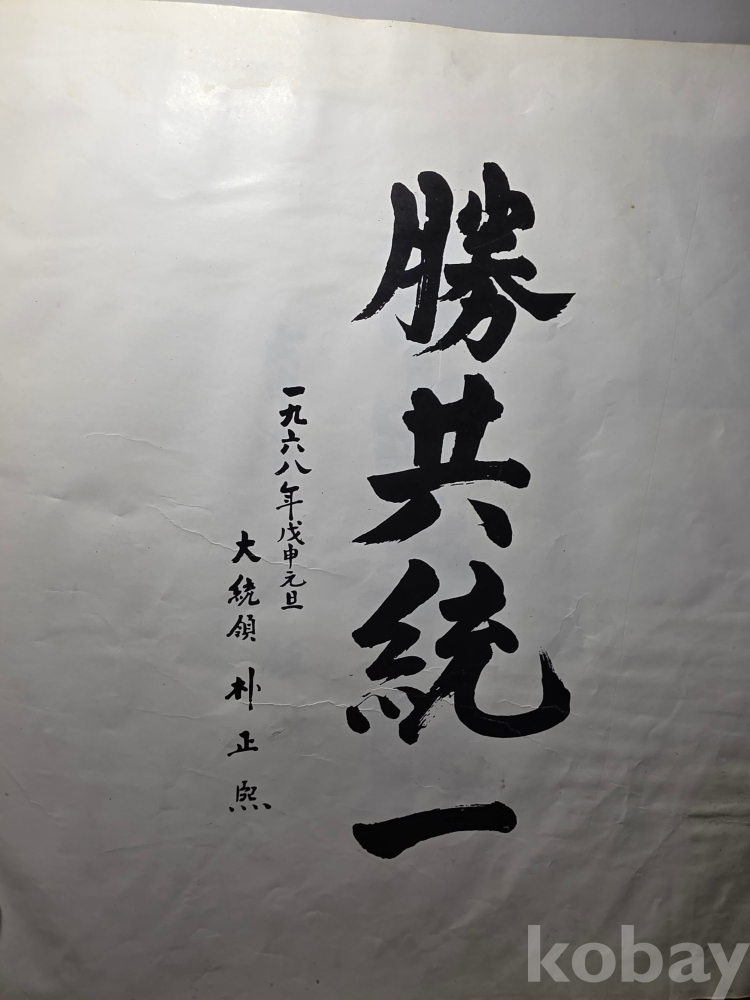 勝共統一
一九六八年戊申元旦
大統領 朴正熙
kobay